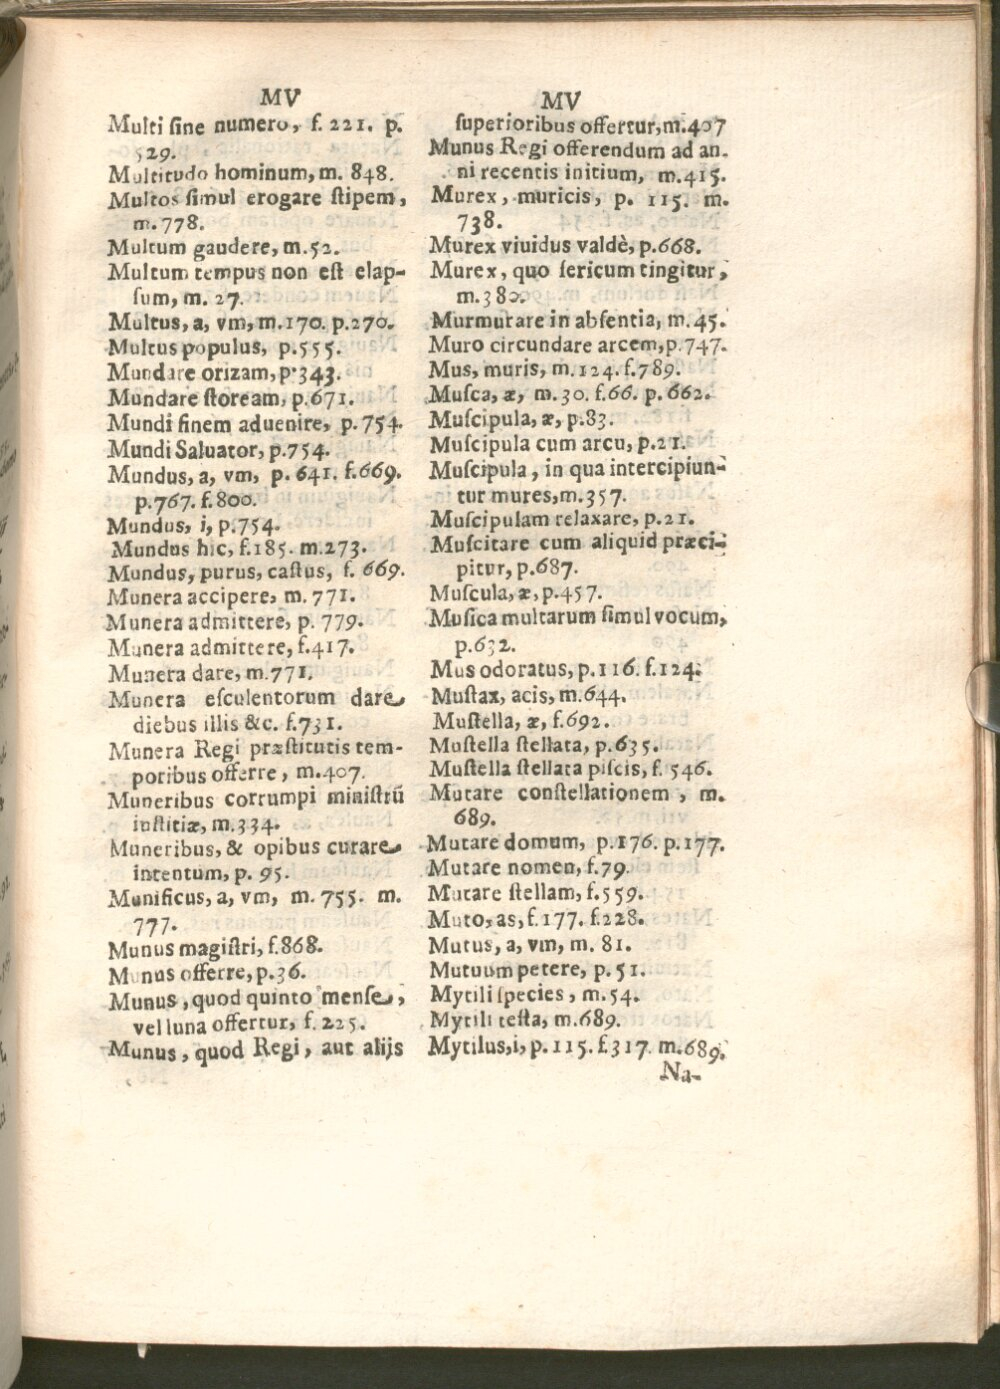 MV
Multi ſine numero, f. 221. p.
529.
Multitudo hominum, m. 848.
Multos ſimul erogare ſtipem,
m. 778.
Multum gaudere, m. 52.
Multum tempus non eſt elap-
ſum, m. 27.
Multus, a, vm, m. 170. p. 270.
Multus populus, p. 555.
Mundare orizam, p. 343.
Mundare ſtoream, p. 671.
Mundi finem aduenire, p. 754.
Mundi Saluator, p. 754.
Mundus, a, vm, p. 641. f. 669.
p. 767. f. 800.
Mundus, i, p. 754.
Mundus hic, f. 185. m. 273.
Mundus, purus, caſtus, f. 669.
Munera accipere, m. 771.
Munera admittere, p. 779.
Munera admittere, f. 417.
Munera dare, m. 771.
Munera eſculentorum dare
diebus illis &c. f. 731.
Munera Regi præſtitutis tem-
poribus offerre, m. 407.
Muneribus corrumpi miniſtrū
iuſtitiæ, m. 334.
Muneribus, & opibus curare
intentum, p. 95.
Munificus, a, vm, m. 755. m.
777.
Munus magiſtri, f. 868.
Munus offerre, p. 36.
Munus, quod quinto menſe,
vel luna offertur, f. 225.
Munus, quod Regi, aut alijs
MV
ſuperioribus offertur, m. 407
Munus Regi offerendum ad an-
ni recentis initium, m. 415.
Murex, muricis, p. 115. m.
738.
Murex viuidus valdè, p. 668.
Murex, quo ſericum tingitur,
m. 380.
Murmurare in abſentia, m. 45.
Muro circundare arcem, p. 747.
Mus, muris, m. 124. f. 789.
Muſca, æ, m. 30. f. 66. p. 662.
Muſcipula, æ, p. 83.
Muſcipula cum arcu, p. 21.
Muſcipula, in qua intercipiun-
tur mures, m. 357.
Muſcipulam relaxare, p. 21.
Muſcitare cum aliquid præci-
pitur, p. 687.
Muſcula, æ, p. 457.
Muſica multarum ſimul vocum,
p. 632.
Mus odoratus, p. 116. f. 124.
Muſtax, acis, m. 644.
Muſtella, æ, f. 692.
Muſtella ſtellata, p. 635.
Muſtella ſtellata piſcis, f. 546.
Mutare conſtellationem, m.
689.
Mutare domum, p. 176. p. 177.
Mutare nomen, f. 79.
Mutare ſtellam, f. 559.
Muto, as, f. 177. f. 228.
Mutus, a, vm, m. 81.
Mutuum petere, p. 51.
Mytili ſpecies, m. 54.
Mytili teſta, m. 689.
Mytilus, i, p. 115. f. 317. m. 689.
Na-